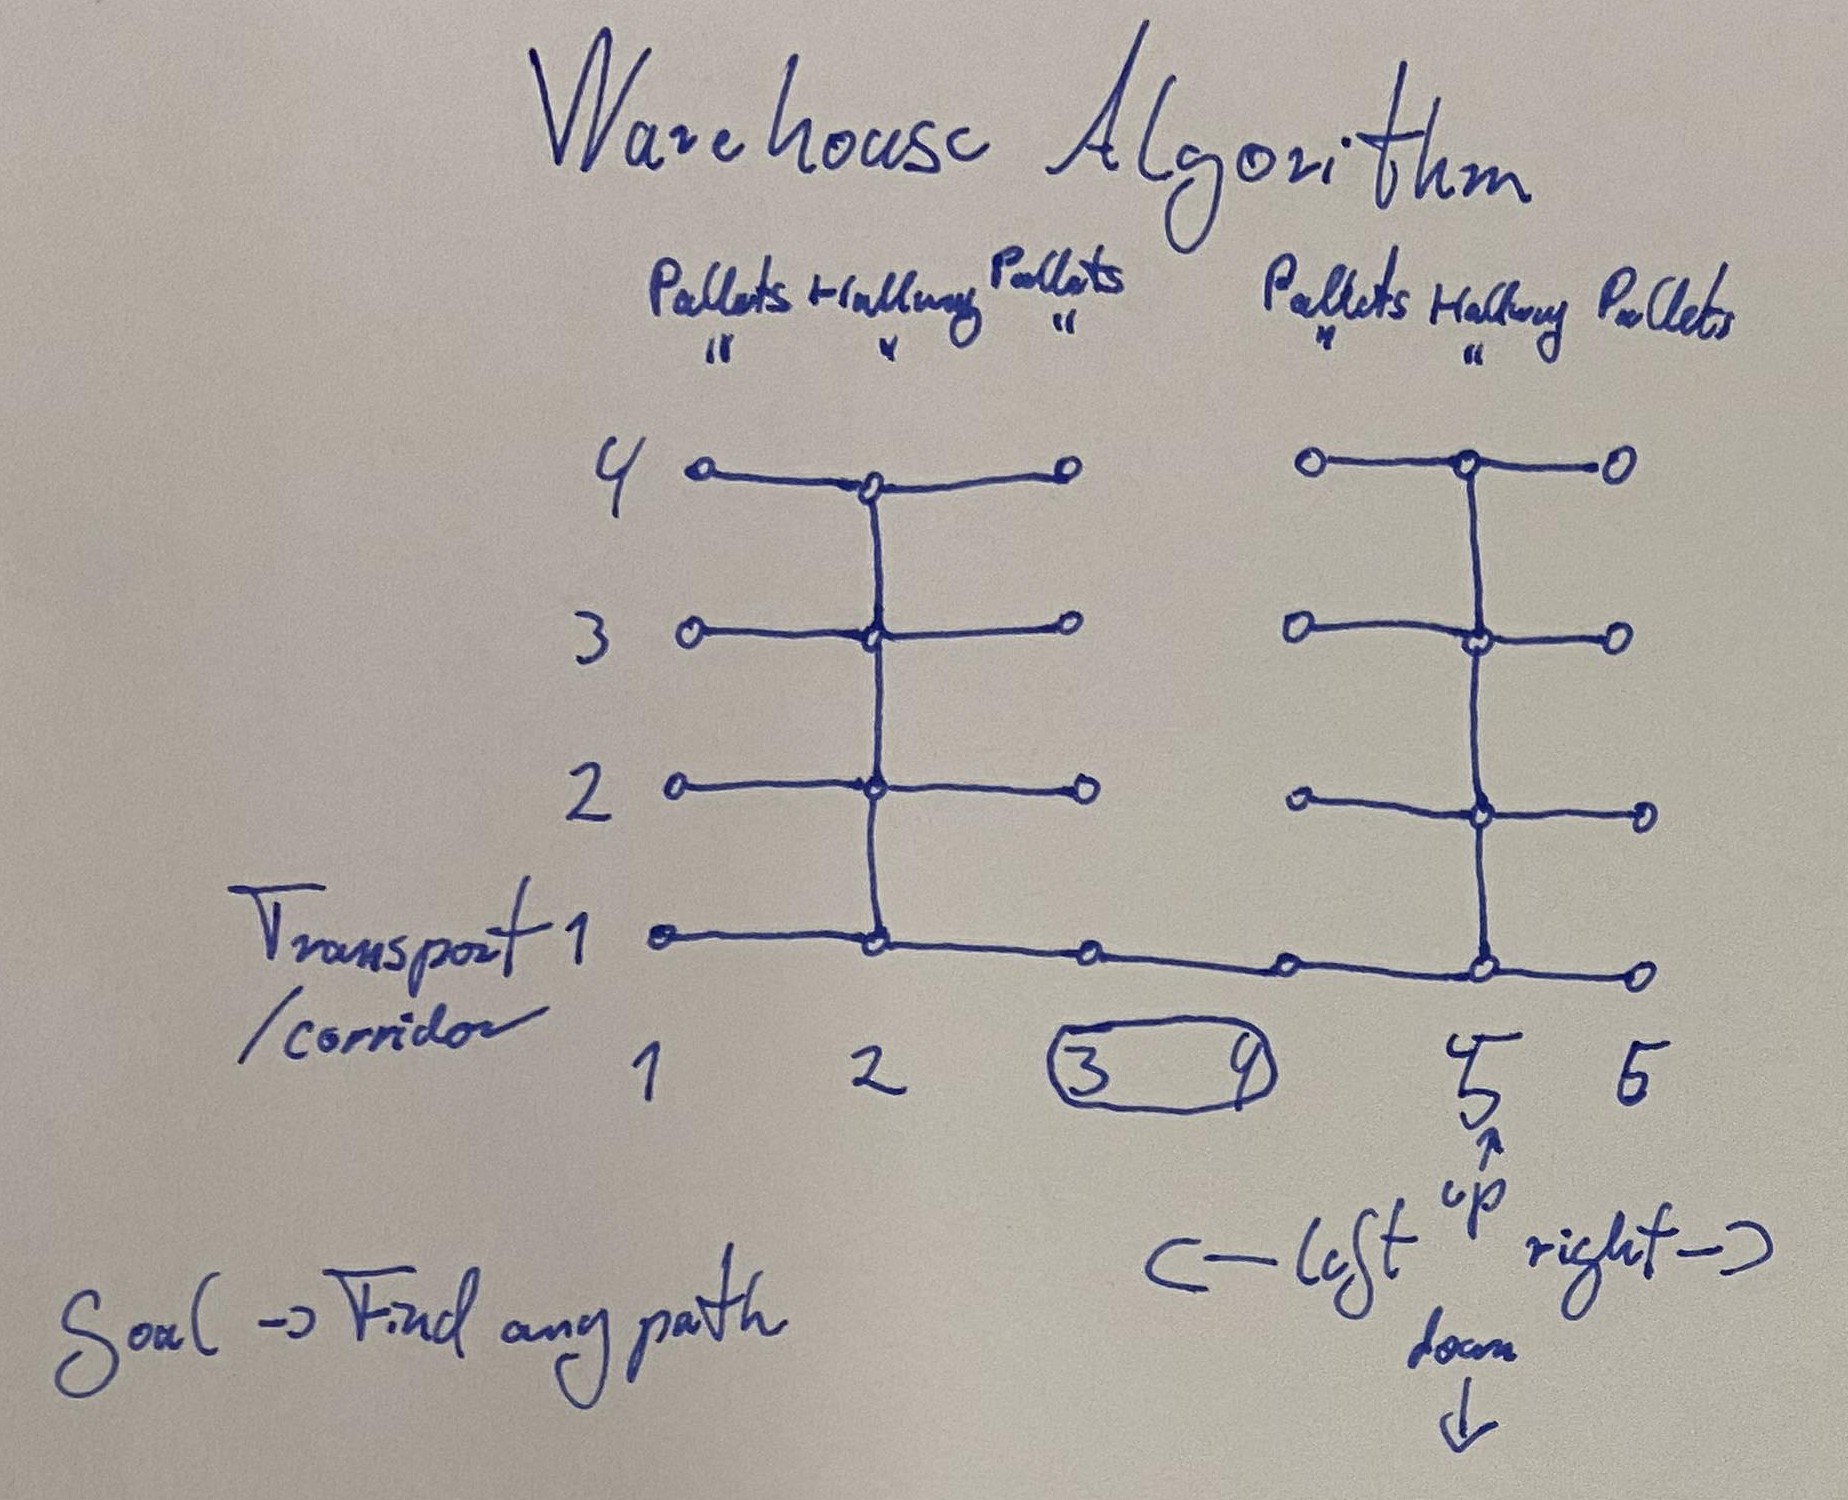 Warehouse Algorithm
Pallets Hallway Pallets Pallets Hallway Pallets
" " " " "
4
3
2
Transport 1
/corridor
1 2 3 4 5 6
up
<— left right —>
down
Goal -> Find any path